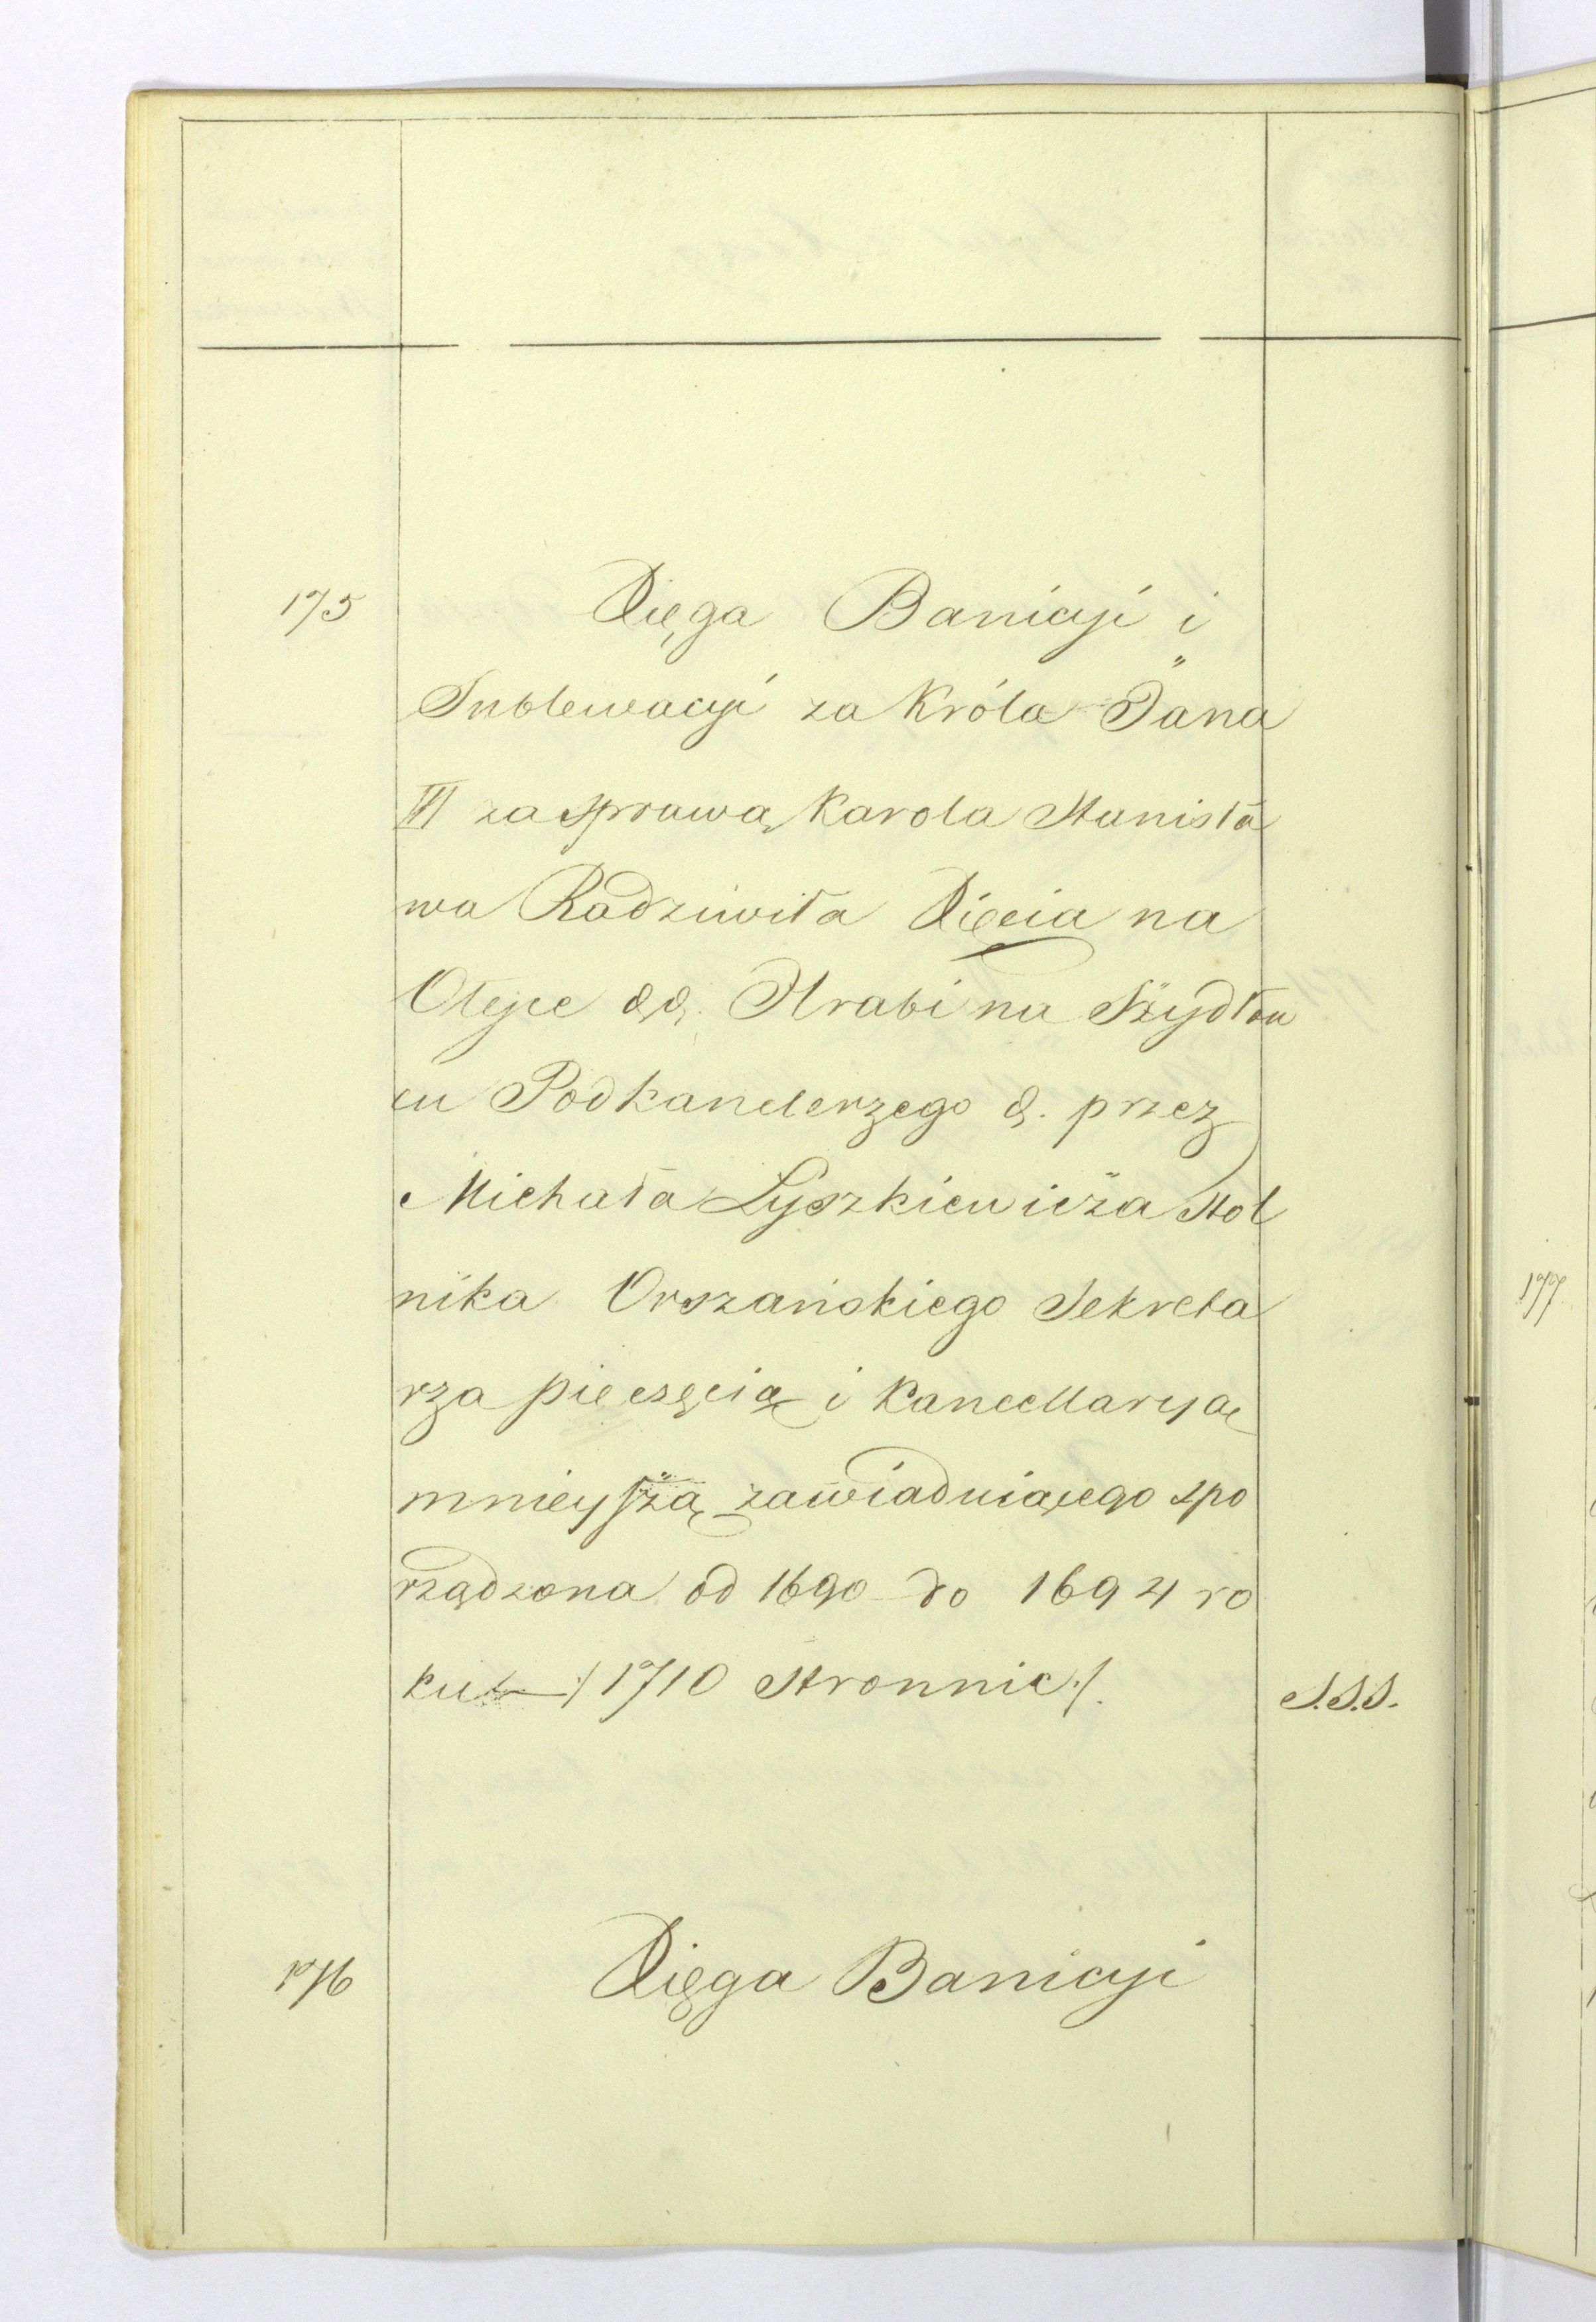 175
Xięga Banicyi i
Sublewacyi za Króla Jana
III za sprawą Karola Stanisła
wa Radziwiła Xięcia na
Ołyce &&. Hrabi na Szydłow
cu Podkanclerzego &. przez
Michała Łyszkiewicza Stol
nika Orszańskiego Sekreta
rza pieczęcią i Kancellaryą
mnieyszą zawiaduiącego spo
rządzona od 1690 do 1694 ro
ku /1710 Stronnic/.
S.S.S.
176
Xięga Banicyi
177